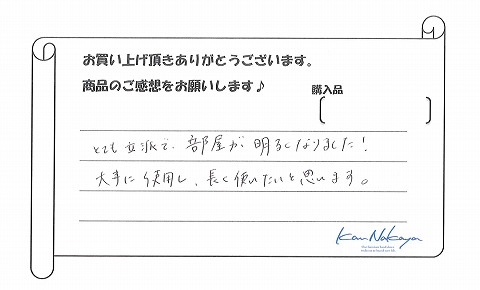 お買い上げ頂きありがとうございます。
商品のご感想をお願いします♪
購入品
とても立派で、部屋が明るくなりました！
大事に使用し、長く使いたいと思います。
Kan Nakaya